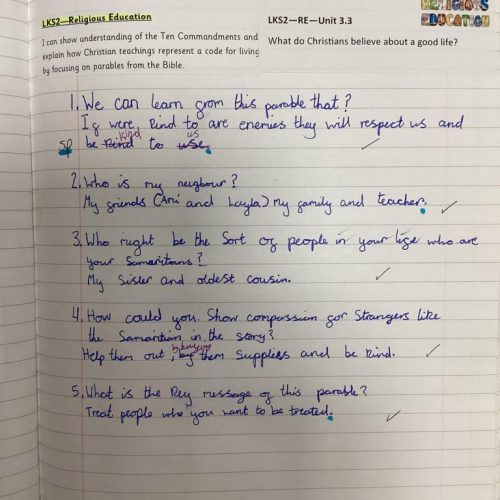 LKS2—Religious Education
I can show understanding of the Ten Commandments and
explain how Christian teachings represent a code for living
by focusing on parables from the Bible.
RELIGIOUS
EDUCATION
LKS2—RE—Unit 3.3
What do Christians believe about a good life?
1. We can learn grom this parable that?
Ig were kind to are enemies they will respect us and
kind us
sp be Rind to use.
2. Who is my neigbour?
My griends (Ami and Layla) My family and teacher.
3. Who might be the Sort og people in your lige who are
your Samaritans?
My Sister and oldest cousin.
4. How could you Show compassion gor Strangers like
the Samaritian in the story?
by buying
Help them out, by them Supplies and be Rind.
5. What is the Rey message og this parable?
Treat people who you want to be treated.